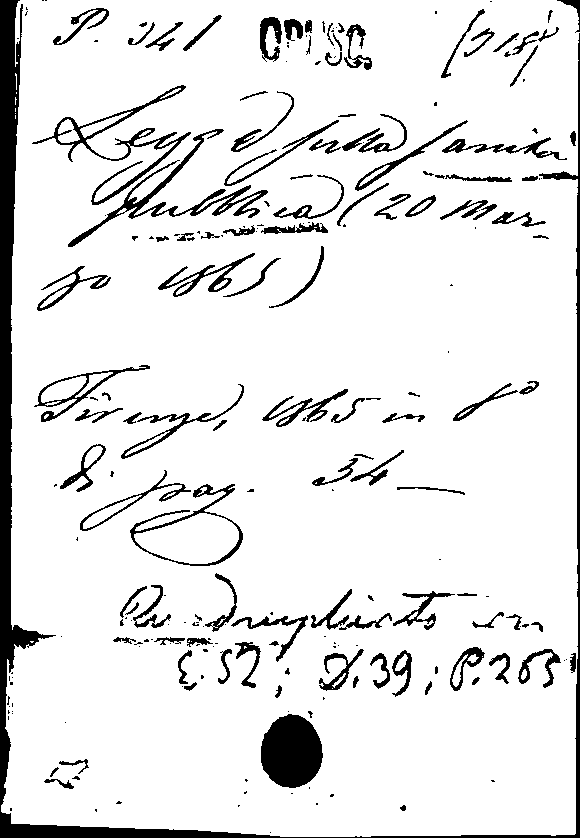 P. 341 OPUSC. (318)
Legge sulla sanità
pubblica (20 Mar-
zo 1865)
Firenze, 1865 in 8º
di pag. 54 —
Quadruplicato in
E.52; D.39; P.265